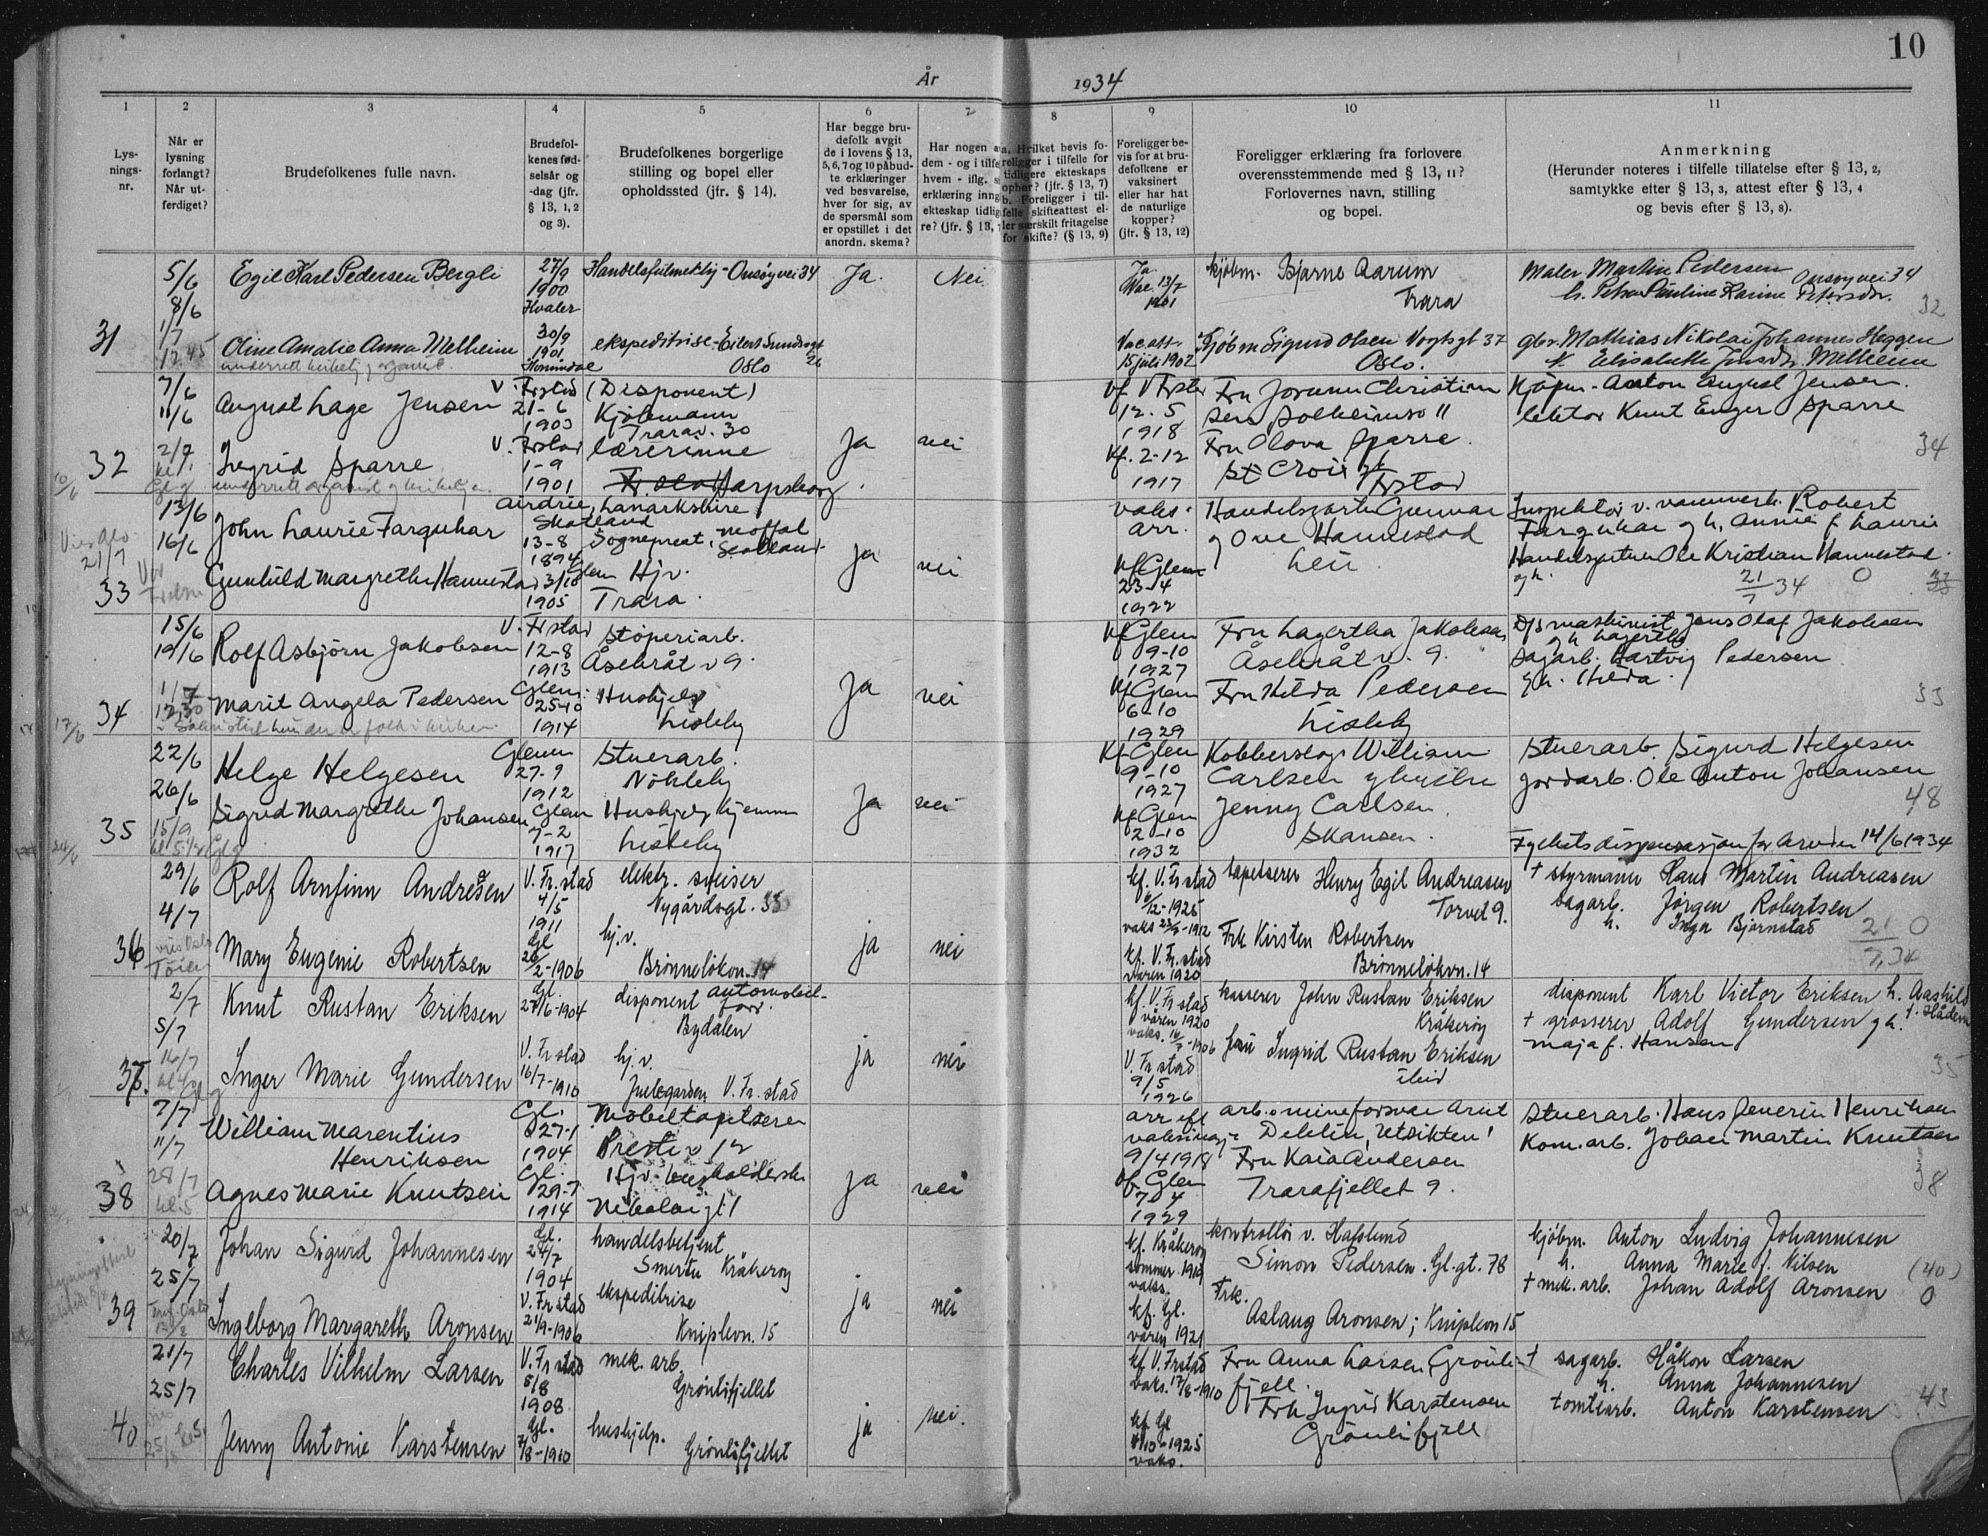 10
År 1934
1 2 3 4 5 6 7 8 9 10 11
Lys-
nings-
nr.
Når er
lysning
forlangt?
Når ut-
ferdiget?
Brudefolkenes fulle navn.
Brudefol-
kenes fød-
selsår og
-dag (jfr.
§ 13, 1, 2
og 3).
Brudefolkenes borgerlige
stilling og bopel eller
opholdssted (jfr. § 14).
Har begge bru-
defolk avgit
de i lovens § 13,
5, 6, 7 og 10 påbud-
te erklæringer
ved besvarelse,
hver for sig, av
de spørsmål som
er opstillet i det
anordn. skema?
Har nogen a
dem - og i tilfe
hvem - iflg. s
erklæring inng
ekteskap tidlig
re? (jfr. § 13,
a. Hvilket bevis fo-
religger i tilfelle for
tidligere ekteskaps
ophør? (jfr. § 13, 7)
b. Foreligger i til-
felle skifteattest el-
ler særskilt fritagelse
for skifte? (§ 13, 9)
Foreligger be-
vis for at bru-
defolkene er
vaksinert
eller har hat
de naturlige
kopper?
(jfr. § 13, 12)
Foreligger erklæring fra forlovere
overensstemmende med § 13, 11?
Forlovernes navn, stilling
og bopel.
Anmerkning
(Herunder noteres i tilfelle tillatelse efter § 13, 2,
samtykke etter § 13, 3, attest efter § 13, 4
og bevis efter § 13, 8).
31
5/6
8/6
1/7
Egil Karl Pedersen Bergli
27/9
1900
Hvaler
Onsøyvei 34
Ja.
Nei
Ja
Vac 13/7
1901
kjøbm. Bjarne Aarum
Trara
Maler Martin Pedersen Onsøyvei 34
h. Petra Pauline Karine Petersdtr.
32
Oline Amalie Anna Melheim
30/9
1901
ekspeditrise - Eilert Sundsgt
26
Oslo
Vac.att.
15 juli 1902
Kjøbm Sigurd Olsen Vogtsgt 37
Oslo.
gbr. Mathias Nikolai Johannes Heggen
Elisabeth Jonsdr. Melheim
32
7/6
11/6
August Lage Jensen
V. Frstad
21-6
1903
(Disponent)
Kjøbmann
Trarav. 30
Ja
nei
12.5
1918
Fru Jorunn Christian
sen, Solheimso 11
Kjøpm. Anton August Jensen.
lektor Knut Enger Sparre
34
Ingrid Sparre
V. Frstad
1-9
1901
lærerinne
Sarpsborg
Kf. 2-12
1917
Fru Olova Sparre.
St Croix gt
Frstad
33
13/6
16/6
21/7
John Laurie Farquhar
Airdrie, Lanarkshire
Skotland
13-8
1894
Sogneprest, Moffat
Scotland
Ja
nei
vaks.
arr.
Handelsgartn Gunnar
g Ove Hannestad
Leie
Inspektør v. vannverk. Robert
Farquhar g h. Annie f. Laurie
Gunhild Margrethe Hannestad
Glem
3/10
1905
Hj.v.
Trara.
kf Glem
23-4
1922
Handelsgartner Ole Kristian Hannestad.
g h.
21/7 34 0
34
15/6
19/6
Rolf Asbjørn Jakobsen
V. Frstad
12-8
1913
Støperiarb.
Åsebråt v 9.
Ja
nei
kf Glem
9-10
1927
Fru Lagertha Jakobsen
Åsebråt v. 9.
D/S maskinist Jens Olaf Jakobsen
g h Lagertha
Marit Angela Pedersen
Glem.
25-10
1914
Hushjelp
Lisleby
kf Glem
6-10
1929
Fru Hilda Pedersen
Lisleby
Sagarb. Hartvig Pedersen
g h. Hilda.
33
17/6
35
22/6
26/6
15/9
Helge Helgesen
Glem
27-9
1912
Stuerarb.
Nökleby
Ja
nei
kf Glem
9-10
1927
Kobberslag. William
Carlsen g hustru
Jenny Carlsen
Skansen.
Stuerarb. Sigurd Helgesen
jordarb. Ole Anton Johansen
48
Sigrid Margrethe Johansen
Glem
7-2
1917
Hushjelp hjemme
Lisleby
kf Glem
2-10
1932
Fylkets dispensasjon for 14/6 1934
36
29/6
4/7
Rolf Arnfinn Andresen
V. Fr.stad
4/5
1911
elektr. sveiser
Nygårdsgt. 33
ja
nei
kf. V. Fr stad
6/12-1925
vaks 23/9-1912
tapetserer Henry Egil Andreasen
Torvet 9.
+ styrmann Hans Martin Andreasen
Mary Eugenie Robertsen
Gl
26/2-1906
hj.v.
Brønneløkvn. 14
kf. V. Fr. stad
våren 1920
Frk Kirsten Robertsen
Brønneløkvn. 14
sagarb. Jørgen Robertsen
h. Inga Bjørnstad
21/7.34 0
37.
2/7
5/7
Knut Rustan Eriksen
Gl.
27/6-1904
disponent automobil-
forr.
Bydalen
ja
nei
kf. V. Fr stad
våren 1920
vaks. 16/7-1906
kasserer John Rustan Eriksen
Kråkerøy
disponent Karl Victor Eriksen h. Aashild
f. Hådem
Inger Marie Gundersen
V. Fr stad
16/7-1910
hj.v.
Juelsgarden V. Fr. stad
V. Fr stad
9/5
1926
frü Ingrid Rustan Eriksen
ibid
+ grosserer Adolf Gundersen g h.
Maja f. Hansen
35
38
7/7
11/7
28/7
kl. 5
William Marentius
Henriksen
Gl.
27-1
1904
Møbeltapetserer
Prestev 12
Ja
nei
9/4 1918
Delelin, Utsikten!
Stuerarb. Hans Severin Henriksen
Agnes Marie Knutsen
Gl.
29-7
1914
Nikolaigt 1
kf Glem
7-4
1929
Fru Kaia Andersen
Trarafjellet 9.
Kom.arb. Johan Martin Knutsen
38
39
20/7
25/7
Johan Sigurd Johannesen
Gl.
24/7
1904
handelsbetjent
Smertu Kråkerøy
ja
nei
kf. Kråkerøy
sommer 1919
vaks.
kontrollør v. Hafslund
Simon Pedersen. Gl.gt. 78
kjøbm. Anton Ludvig Johannesen
h. Anna Marie f. Nilsen
(40)
0
Ingeborg Margareth Aronsen
V. Fr stad
21/9-1906
ekspeditrise
Kniplevn. 15
kf. Gl.
våren 1921
Frk.
Aslaug Aronsen; Kniplevn 15
+ mek. arb. Johan Adolf Aronsen
40
21/7
25/7
Charles Vilhelm Larsen
V. Fr stad
5/8
1908
mek. arb.
Grønlifjellet
ja
nei.
kf V. Frstad
vaks. 17/8-1910
Fru Anna Larsen, Grønli-
fjell.
+ sagarb. Håkon Larsen
h. Anna Johannesen
Jenny Antonie Karstensen
Gl.
7/8-1910
hushjelp.
Grønlifjellet
kf. Gl
1925
vaks.
Frk Ingrid Karstensen
Grønlifjell
tomtearb. Anton Karstensen
43